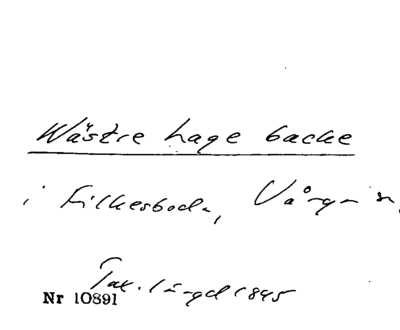 Wästre hage backe
i Filkesboda, Vånga sn.
Tax. längd 1845
Nr 10891